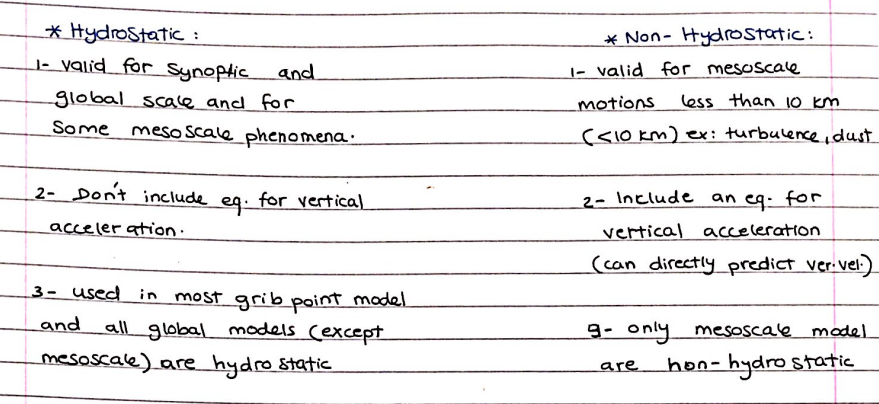 * Hydrostatic :
1- valid for synoptic and
global scale and for
Some mesoscale phenomena.
2- Don't include eq. for vertical
acceleration.
3- used in most grib point model
and all global models (except
mesoscale) are hydrostatic
* Non-Hydrostatic:
1- valid for mesoscale
motions less than 10 km
(<10 km) ex: turbulence, dust
2- Include an eq. for
vertical acceleration
(can directly predict ver.vel.)
3- only mesoscale model
are non-hydrostatic